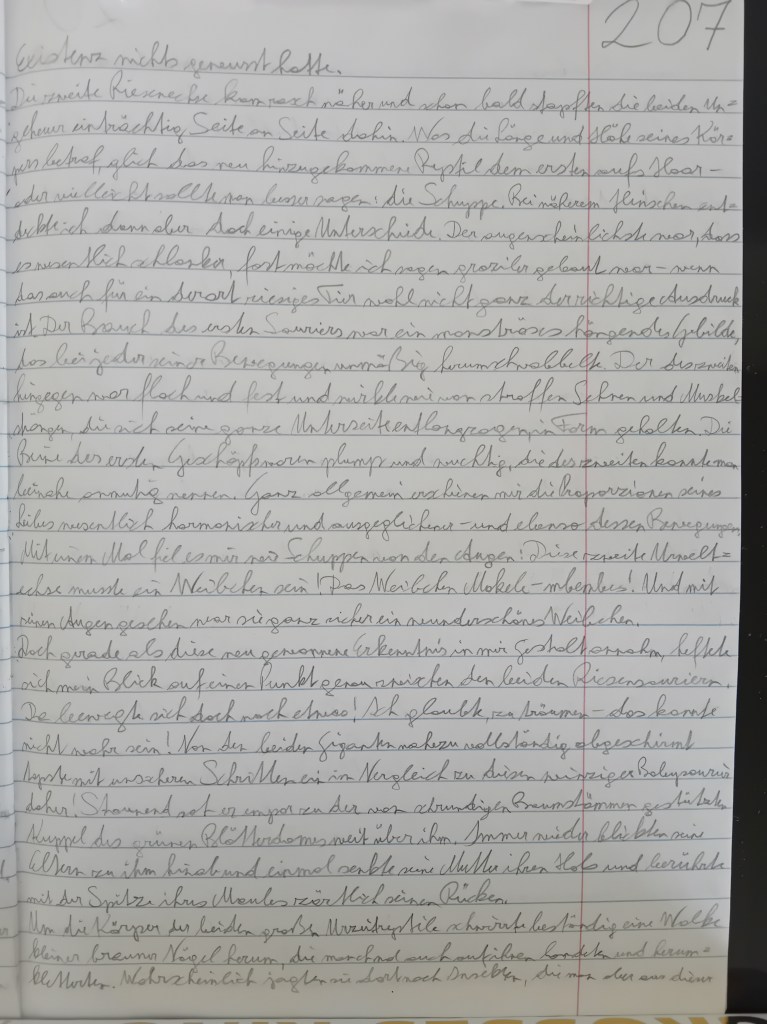 207
Existenz nichts gewusst hatte.
Die zweite Riesenechse kam rasch näher und schon bald stapften die beiden Un=
geheuer einträchtig Seite an Seite dahin. Was die Länge und Höhe seines Kör=
pers betraf, glich das neu hinzugekommene Reptil dem ersten aufs Haar –
oder vielleicht sollte man besser sagen: die Schuppe. Bei näherem Hinsehen ent=
deckte ich dann aber doch einige Unterschiede. Der augenscheinlichste war, dass
es wesentlich schlanker, fast möchte ich sagen graziler gebaut war – wenn
das auch für ein derart riesiges Tier wohl nicht ganz der richtige Ausdruck
ist. Der Bauch des ersten Sauriers war ein monströses hängendes Gebilde,
das bei jeder seiner Bewegungen unmäßig herumschwabbelte. Der des zweiten
hingegen war flach und fest und wirkte wie von straffen Sehnen und Muskel=
strängen, die sich seine ganze Unterseite entlangzogen, in Form gehalten. Die
Beine des ersten Geschöpfs waren plump und wuchtig, die des zweiten konnte man
beinahe anmutig nennen. Ganz allgemein erschienen mir die Proporzionen seines
Leibes wesentlich harmonischer und ausgeglichener – und ebenso dessen Bewegungen.
Mit einem Mal fiel es mir wie Schuppen von den Augen: Diese zweite Urwelt=
echse musste ein Weibchen sein! Das Weibchen Mokele-mbembes! Und mit
seinen Augen gesehen war sie ganz sicher ein wunderschönes Weibchen.
Doch gerade als diese neu gewonnene Erkenntnis in mir Gestalt annahm, heftete
sich mein Blick auf einen Punkt genau zwischen den beiden Riesensauriern.
Da bewegte sich doch noch etwas! Ich glaubte, zu träumen – das konnte
nicht wahr sein! Von den beiden Giganten nahezu vollständig abgeschirmt
tapste mit unsicheren Schritten ein im Vergleich zu diesen winziger Babysaurier
daher! Staunend sah er empor zu der von schrundigen Baumstämmen gestützten
Kuppel des grünen Blätterdomes weit über ihm. Immer wieder blickten seine
Eltern zu ihm hinab und einmal senkte seine Mutter ihren Hals und berührte
mit der Spitze ihres Maules zärtlich seinen Rücken.
Um die Körper der beiden großen Urzeitreptile schwirrte beständig eine Wolke
kleiner brauner Vögel herum, die manchmal auch auf ihnen landeten und herum=
kletterten. Wahrscheinlich jagten sie dort nach Insekten, die man aber aus dieser